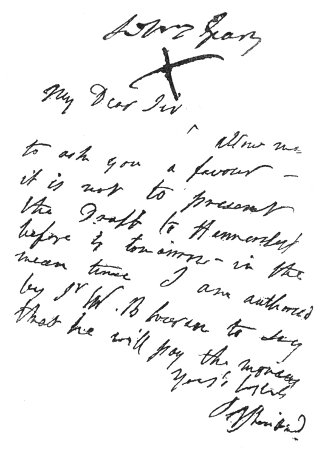 My Dear Sir
allow me
to ask you a favour –
it is not to present
the Draft to Hammersley
before is tomorrow – in the
mean time I am authorised
by Sr W. B to say
that he will pay the money
Yours